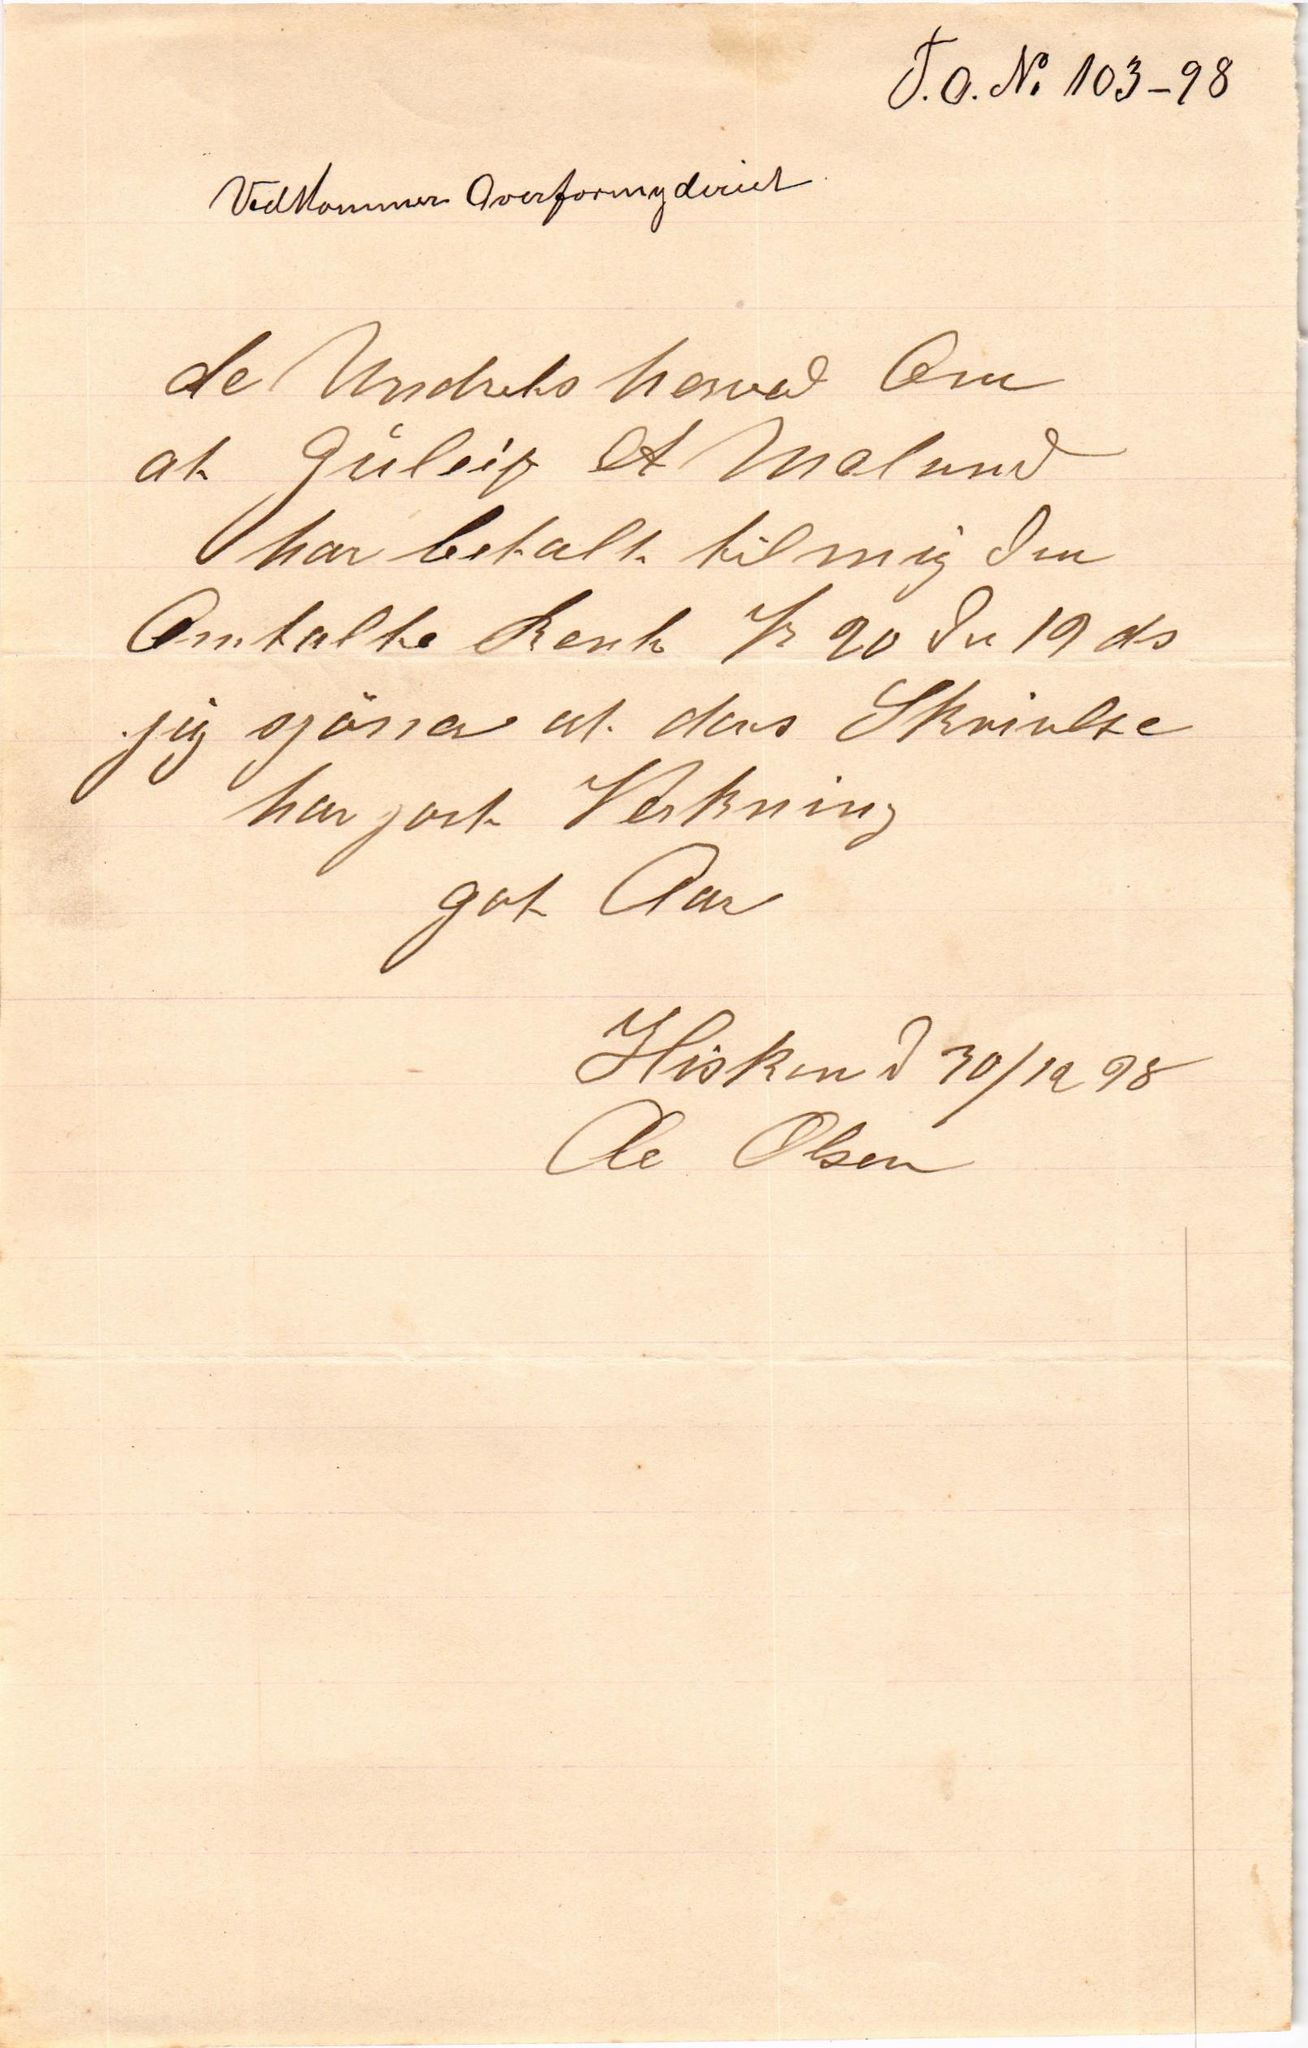 J.O. No 103-98
Vedkommer Overformyderiet
de Undrets herved Om
at Guleip A Meland
har betalt til mig den
Omtalte Rente Kr 20 den 19 ds
jeg sjönner at ders Skrivelse
har jort Verkning
got Aar
Hisken d 30/12 98
Ae Olsen